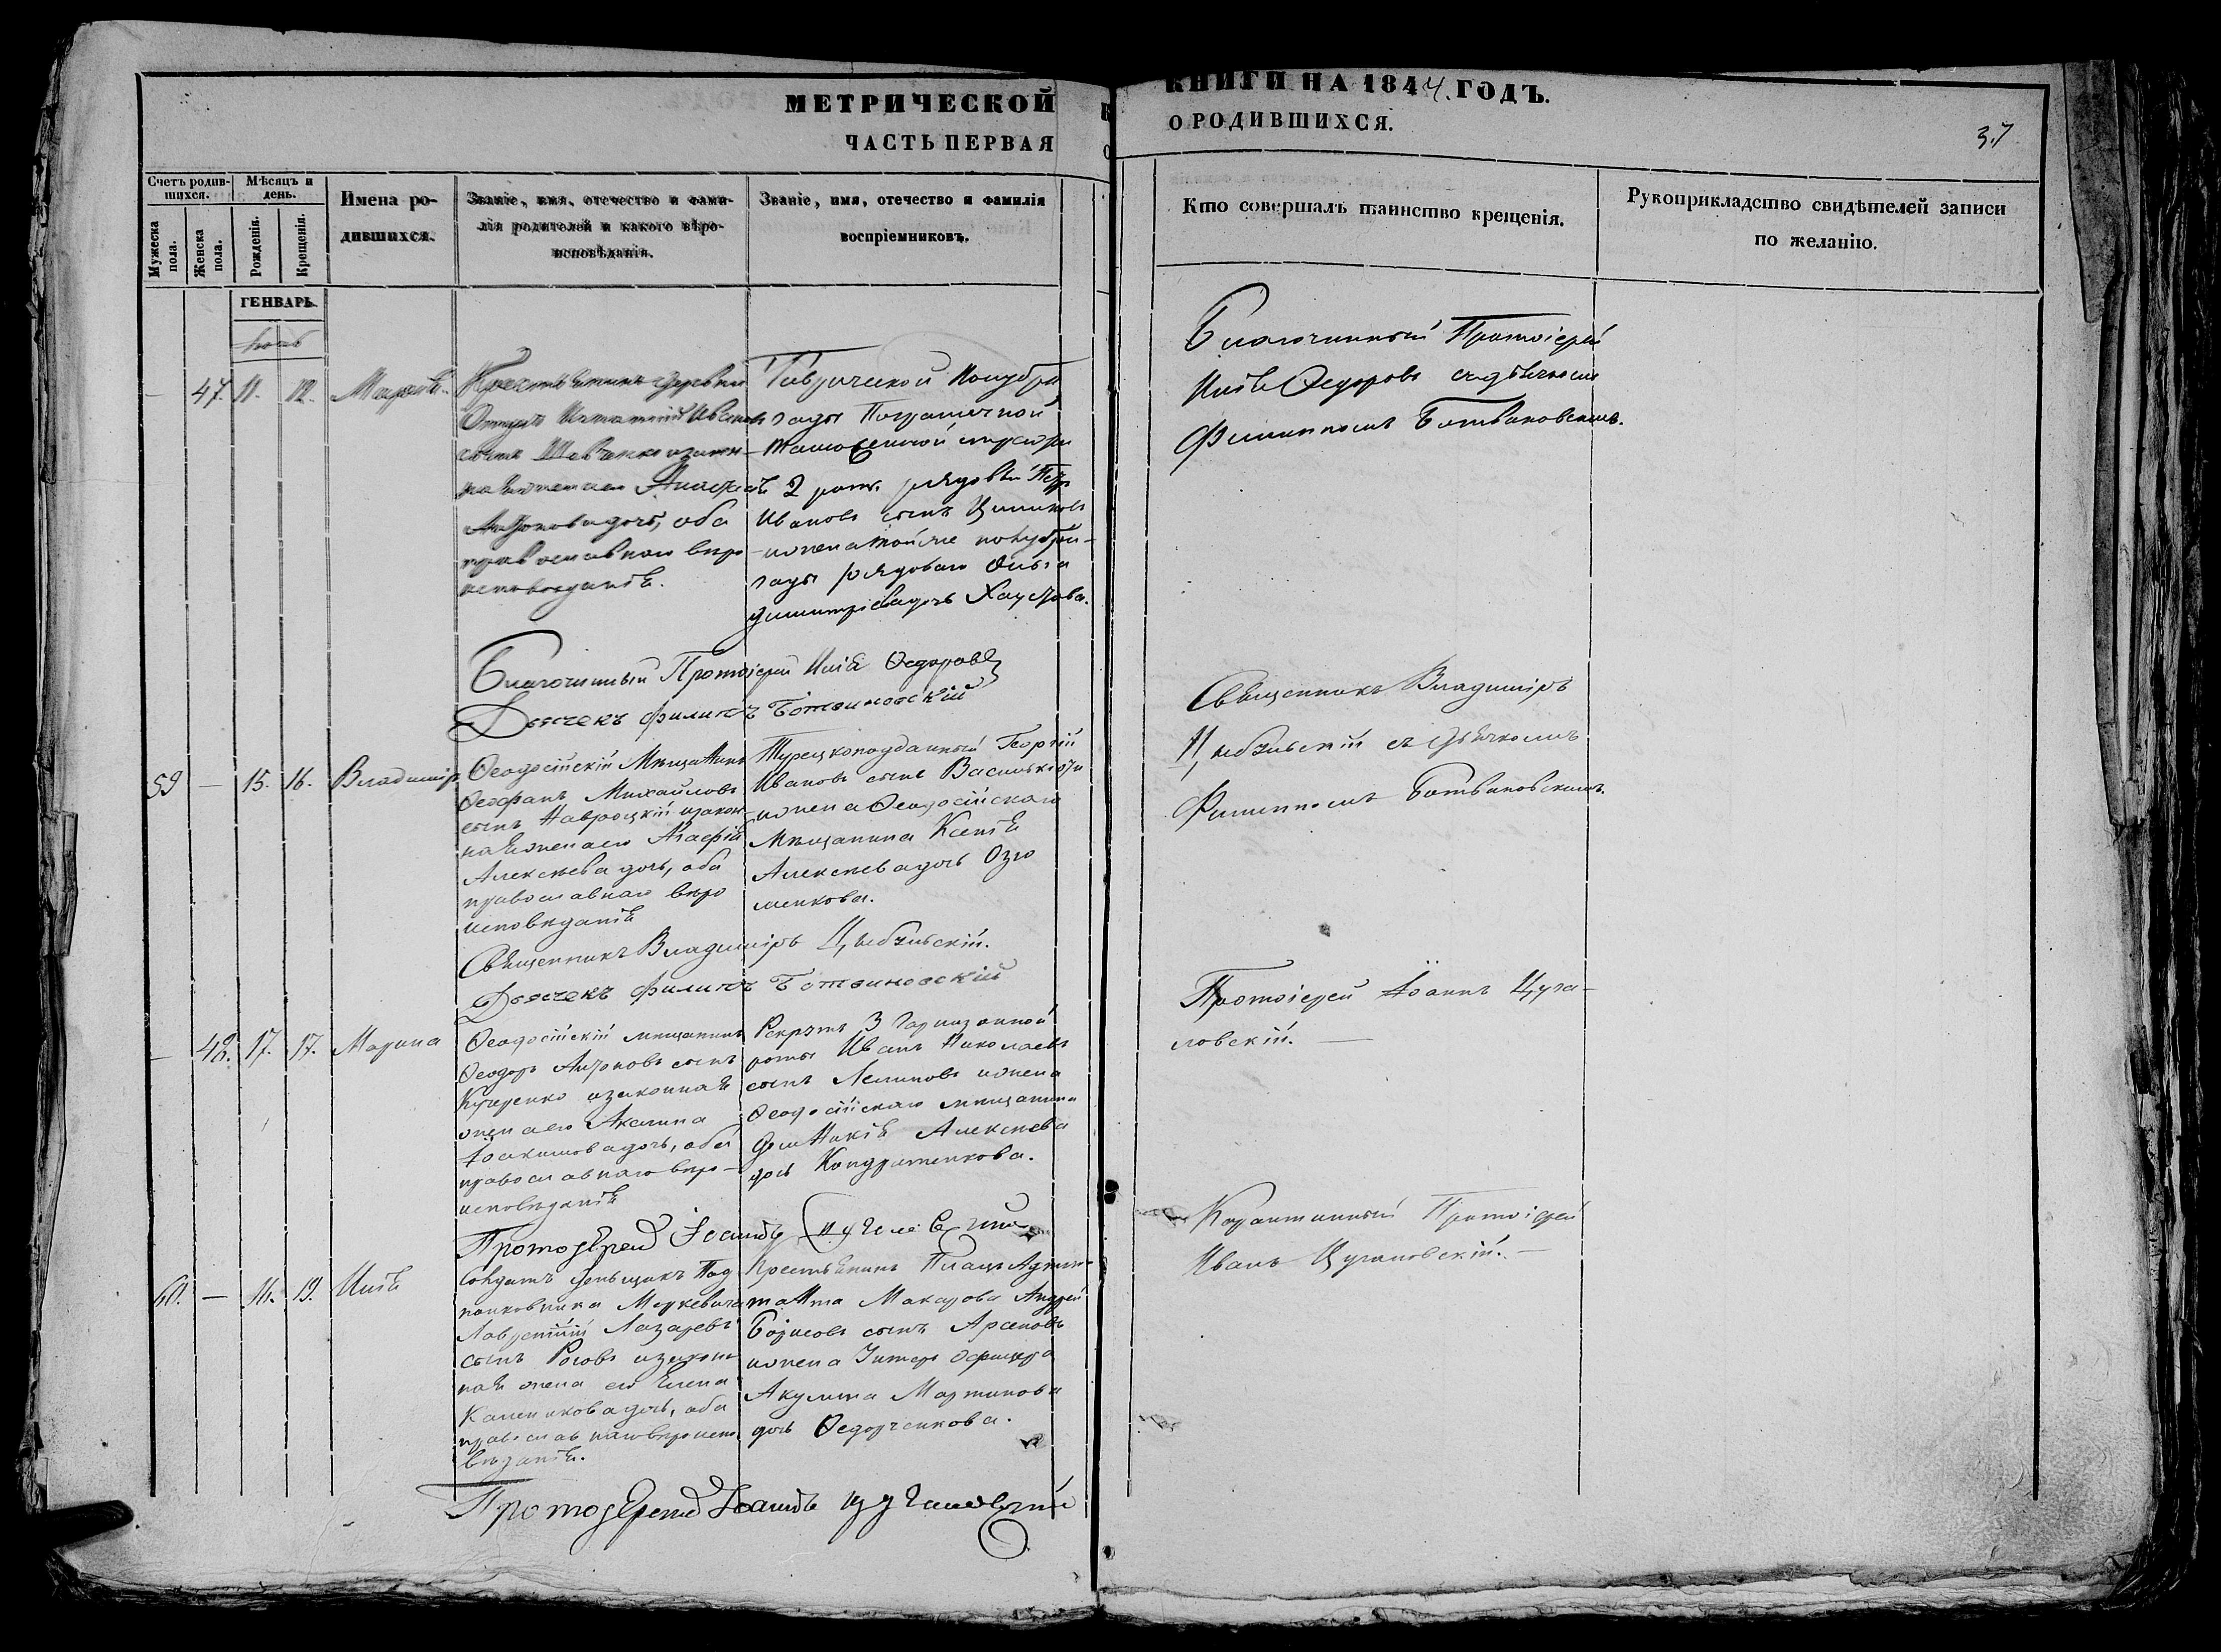 МЕТРИЧЕСКОЙ
ЧАСТЬ ПЕРВАЯ
КНИГИ НА 1844. ГОДЪ.
О РОДИВШИХСЯ.
37
Счетъ родив-
шихся.
Мужеска
пола.
Женска
пола.
Мѣсяцъ и
день.
Рожденія.
Крещенія.
Имена ро-
дившихся.
Званіе, имя, отечество и фами-
лія родителей и какого вѣро-
исповѣданія.
Званіе, имя, отечество и фамилія
воспріемниковъ.
Кто совершалъ таинство крещенія.
Рукоприкладство свидѣтелей записи
по желанію.
ГЕНВАРЬ
— 47. 11. 12.
Крестьянинъ деревни
Иванов
сынъ Шевченко и закон-
ная жена его
дочь, оба
православнаго вѣро
исповѣданія.
Таврической полубри
гады Пограничной
Таможенной стражи
2 роты рядовый Петръ
Ивановъ сынъ
и жена той же полубри-
гады рядоваго Ольга
Димитріева дочь Хаустова.
Благочинный Протоіерей
Илія Ѳедоровъ съ дьячкомъ
Филиппомъ Ботвиновскимъ.
Благочинный Протоіерей Илія Ѳедоровъ
Дьячекъ Филиппъ Ботвиновскій
59 — 15. 16. Владиміръ
Ѳеодосійскій Мѣщанинъ
Ѳеофанъ Михайловъ
сынъ Навроцкій и закон
ная жена его Агафія
Алексѣева дочь, оба
православнаго вѣро
исповѣданія
Турецкоподданный Георгій
Ивановъ сынъ
и жена Ѳеодосійскаго
Мѣщанина Ксенія
Алексѣева дочь
Священникъ Владиміръ
Цыбульскій съ дьячкомъ
Филиппомъ Ботвиновскимъ.
Священникъ Владиміръ Цыбульскій.
Дьячекъ Филиппъ Ботвиновскій
— 48. 17. 17. Марина
Ѳеодосійскій мѣщанинъ
Ѳеодоръ Антоновъ сынъ
и законная
жена его Акилина
Іоакимова дочь, оба
православнаго вѣро-
исповѣданія
Рекрутъ 3 Гарнизонной
роты Иванъ Николаевъ
сынъ и жена
Ѳеодосійскаго мѣщанина
Алексѣева
дочь Кондратенкова.
Протоіерей Іоаннъ Цуга-
ловскій. —
Протоіерей Іоаннъ
60. — 19. Илія
Солдатъ деньщикъ Под
полковника
Лаврентій Лазаревъ
сынъ Роговъ и закон
ная жена его Елена
дочь, оба
православнаго вѣроиспо
вѣданія.
Крестьянинъ Плацъ Адъю
танта Макарова Андрей
Борисовъ сынъ
и жена Унтеръ офицера
Акулина Мартинова
дочь Ѳедорченкова.
Карантинный Протоіерей
Иванъ
Протоіерей Іоаннъ